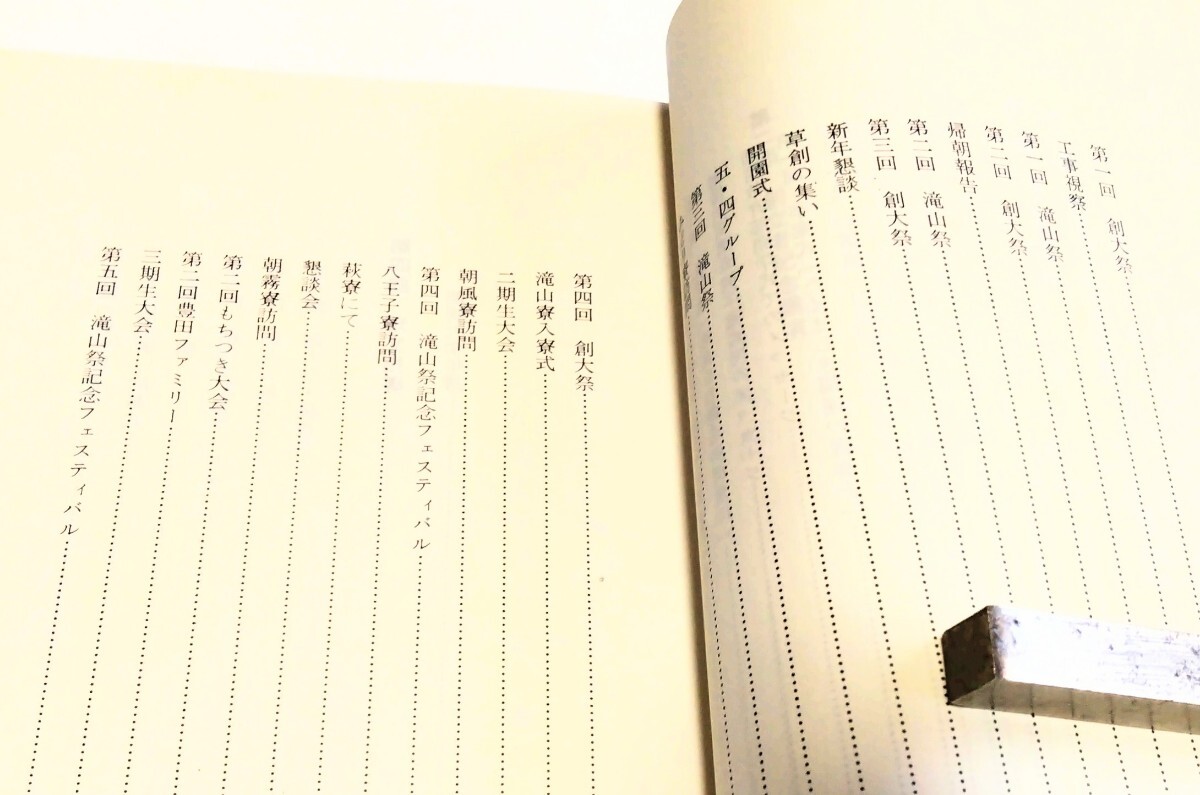 第一回　創大祭
工事視察
第一回　滝山祭
第二回　創大祭
帰朝報告
第二回　滝山祭
第三回　創大祭
新年懇談
草創の集い
開園式
五・四グループ
第三回　滝山祭
第四回　創大祭
滝山寮入寮式
二期生大会
朝風寮訪問
第四回　滝山祭記念フェスティバル
八王子寮訪問
萩寮にて
懇談会
朝霧寮訪問
第二回もちつき大会
第二回豊田ファミリー
三期生大会
第五回　滝山祭記念フェスティバル